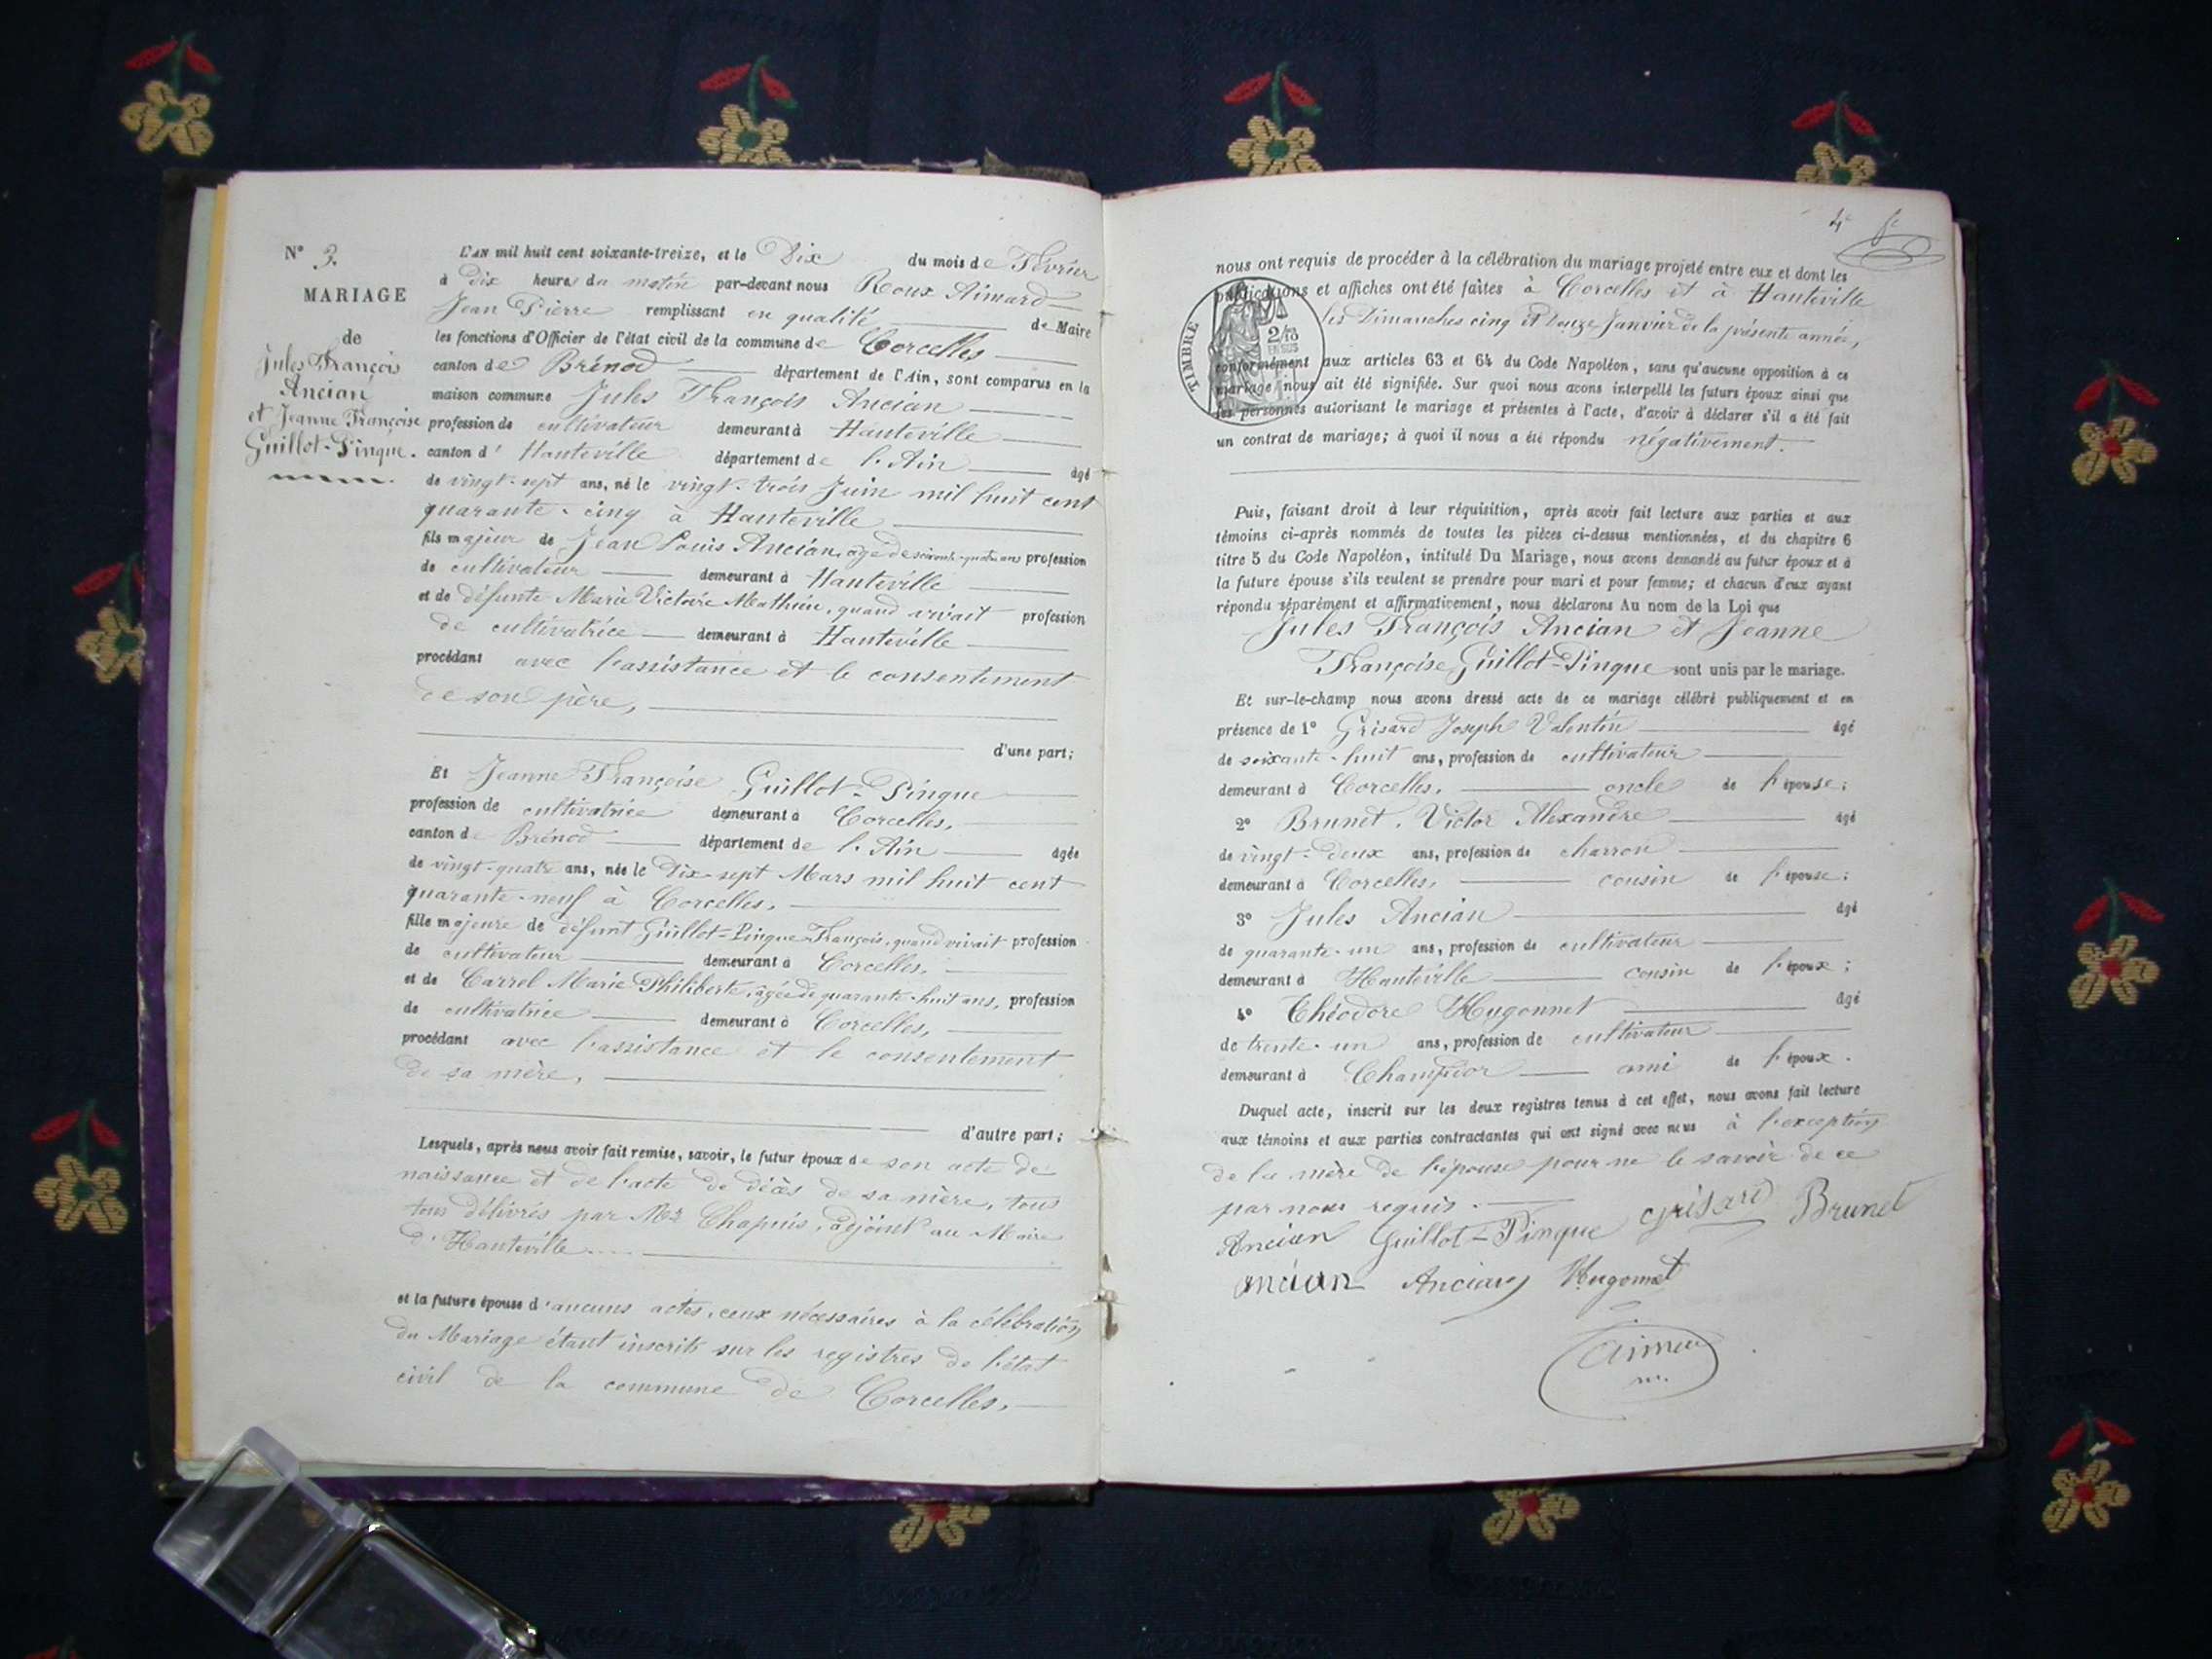 N° 3.
MARIAGE
de
Jules François
Ancian
et Jeanne Françoise
Guillot-Pinque.
L'AN mil huit cent soixante-treize, et le Dix du mois de Février
à dix heures du matin par-devant nous Roux Aimard
Jean Pierre remplissant en qualité de Maire
les fonctions d'Officier de l'état civil de la commune de Corcelles
canton de Brénod département de l'Ain, sont comparus en la
maison commune Jules François Ancian
profession de cultivateur demeurant à Hauteville
canton d' Hauteville département de l'Ain âgé
de vingt-sept ans, né le vingt-trois Juin mil huit cent
quarante-cinq à Hauteville
fils majeur de Jean Louis Ancian, âgé de soixante-quatre ans profession
de cultivateur demeurant à Hauteville
et de défunte Marie Victoire Mathieu, quand vivait profession
de cultivatrice demeurant à Hauteville
procédant avec l'assistance et le consentement
de son père,
d'une part;
Et Jeanne Françoise Guillot-Pinque
profession de cultivatrice demeurant à Corcelles,
canton de Brénod département de l'Ain âgée
de vingt-quatre ans, née le Dix-sept Mars mil huit cent
quarante-neuf à Corcelles,
fille majeure de défunt Guillot-Pinque François, quand vivait profession
de cultivateur demeurant à Corcelles,
et de Carrel Marie Philiberte, âgée de quarante-huit ans, profession
de cultivatrice demeurant à Corcelles,
procédant avec l'assistance et le consentement
de sa mère,
d'autre part;
Lesquels, après nous avoir fait remise, savoir, le futur époux de son acte de
naissance et de l'acte de décès de sa mère, tous
tous délivrés par Mr Chapuis, adjoint au Maire
d'Hauteville
et la future épouse d'aucuns actes, ceux nécessaires à la célébration
du Mariage étant inscrits sur les registres de l'état
civil de la commune de Corcelles,
4
nous ont requis de procéder à la célébration du mariage projeté entre eux et dont les
publications et affiches ont été faites à Corcelles et à Hauteville
les Dimanches cinq et Douze Janvier de la présente année,
TIMBRE
2/10
EN SUS
conformément aux articles 63 et 64 du Code Napoléon, sans qu'aucune opposition à ce
mariage nous ait été signifiée. Sur quoi nous avons interpellé les futurs époux ainsi que
les personnes autorisant le mariage et présentes à l'acte, d'avoir à déclarer s'il a été fait
un contrat de mariage; à quoi il nous a été répondu négativement.
Puis, faisant droit à leur réquisition, après avoir fait lecture aux parties et aux
témoins ci-après nommés de toutes les pièces ci-dessus mentionnées, et du chapitre 6
titre 5 du Code Napoléon, intitulé Du Mariage, nous avons demandé au futur époux et à
la future épouse s'ils veulent se prendre pour mari et pour femme; et chacun d'eux ayant
répondu séparément et affirmativement, nous déclarons Au nom de la Loi que
Jules François Ancian et Jeanne
Françoise Guillot-Pinque sont unis par le mariage.
Et sur-le-champ nous avons dressé acte de ce mariage célébré publiquement et en
présence de 1° Grisard Joseph Valentin âgé
de soixante-huit ans, profession de cultivateur
demeurant à Corcelles, oncle de l'épouse;
2° Brunet, Victor Alexandre âgé
de vingt-deux ans, profession de charron
demeurant à Corcelles, cousin de l'épouse;
3° Jules Ancian âgé
de quarante-un ans, profession de cultivateur
demeurant à Hauteville cousin de l'époux;
4° Théodore Hugonnet âgé
de trente-un ans, profession de cultivateur
demeurant à Champdor ami de l'époux.
Duquel acte, inscrit sur les deux registres tenus à cet effet, nous avons fait lecture
aux témoins et aux parties contractantes qui ont signé avec nous à l'exception
de la mère de l'épouse pour ne le savoir de ce
par nous requis.
Ancian Guillot-Pinque Grisard Brunet
ancian Ancian Hugonnet